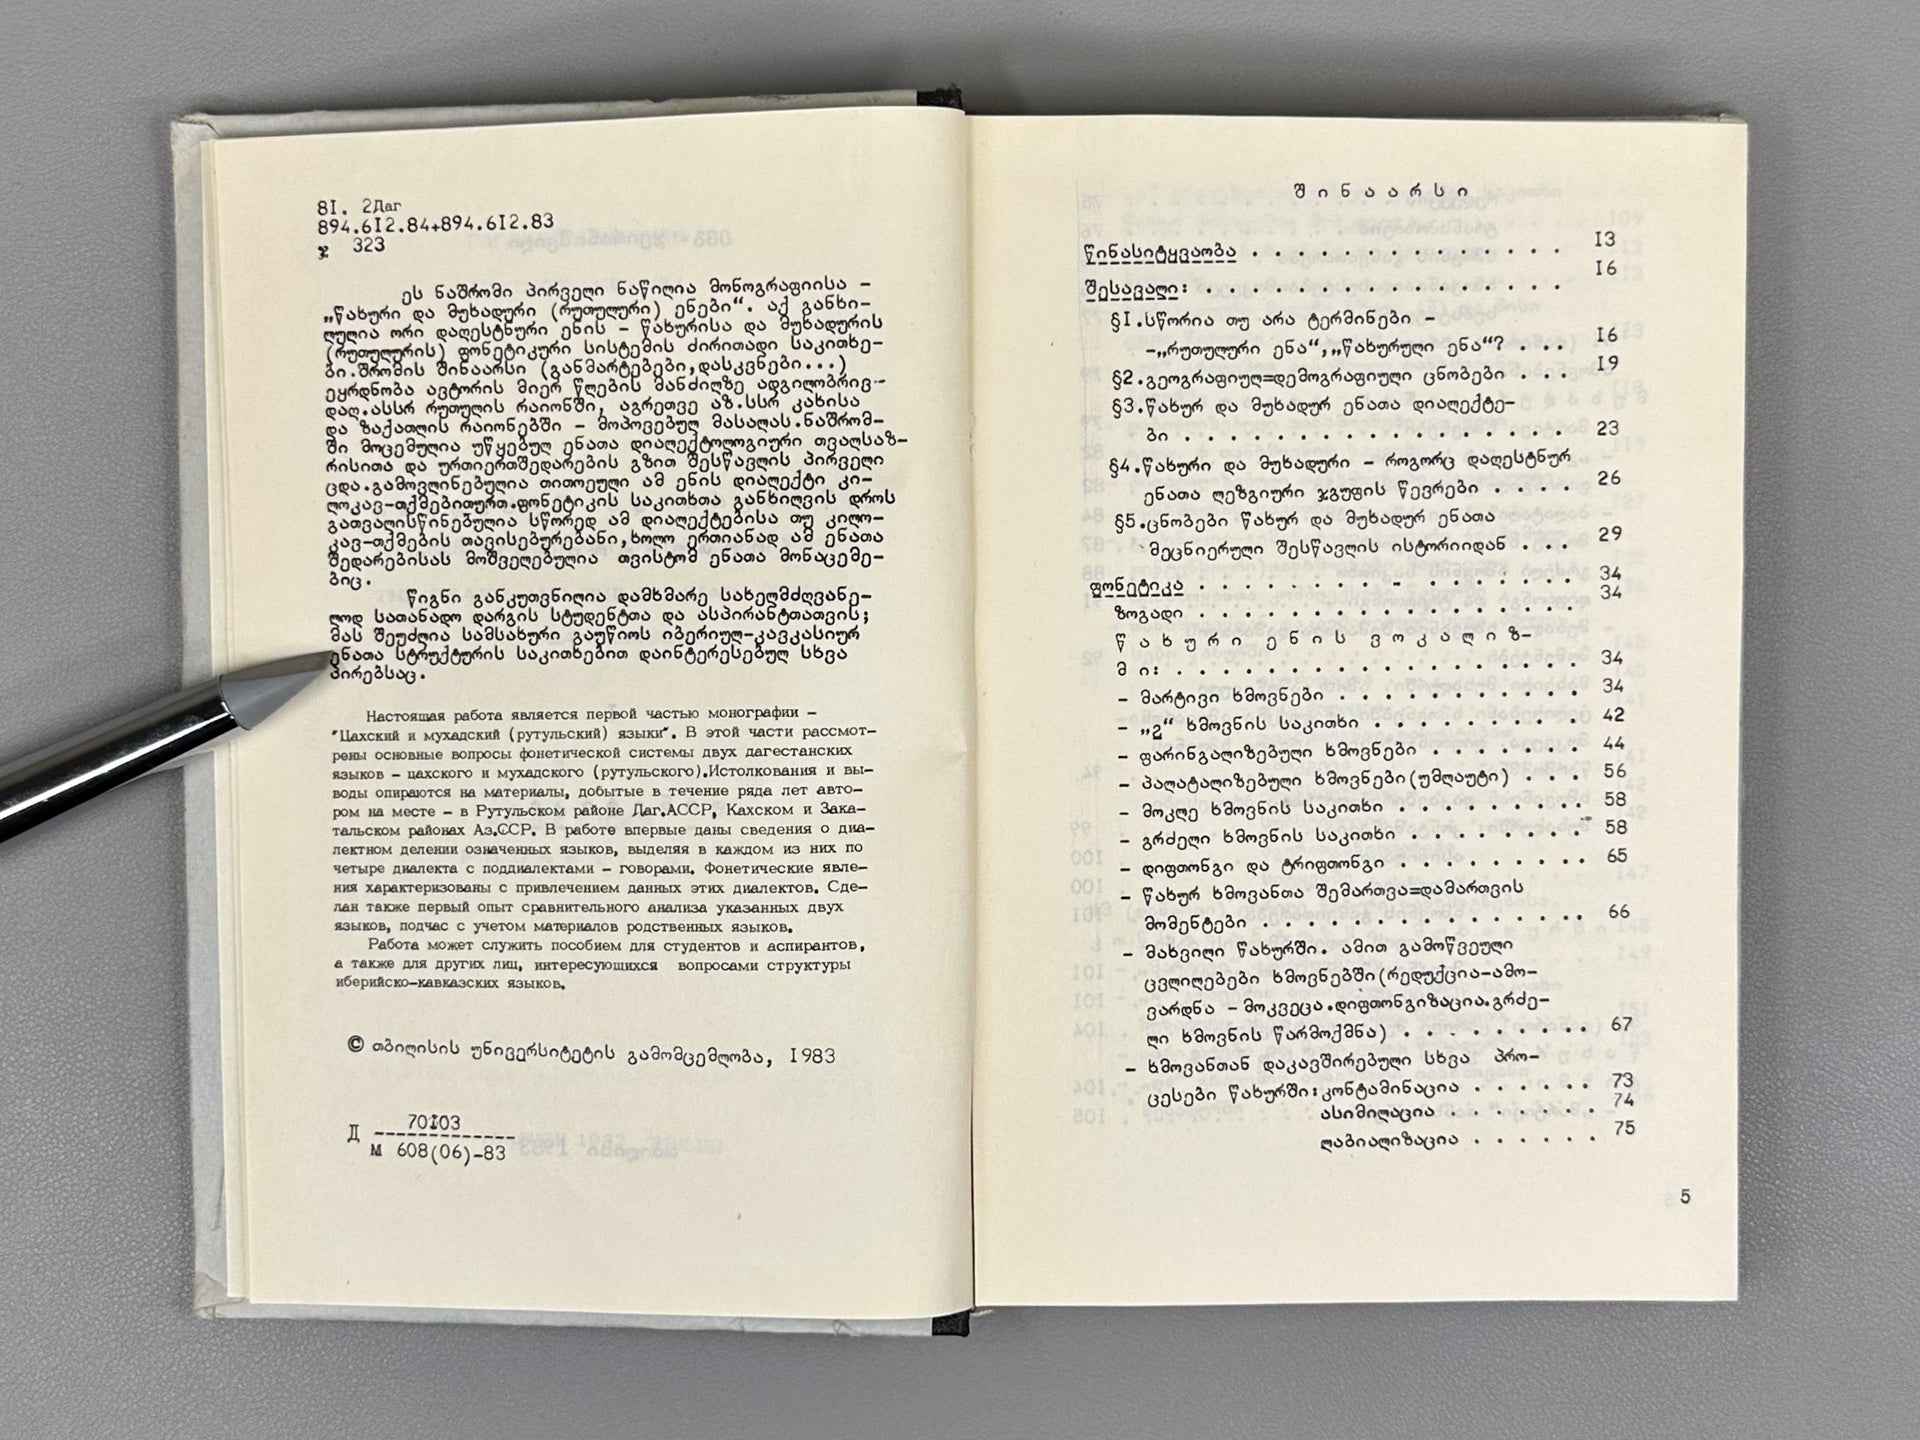 81. 2Даг
894.612.84+894.612.83
ჯ 323
ეს ნაშრომი პირველი ნაწილია მონოგრაფიისა –
„წახური და მუხადური (რუთულური) ენები“. აქ განხი-
ლულია ორი დაღესტნური ენის – წახურისა და მუხადურის
(რუთულურის) ფონეტიკური სისტემის ძირითადი საკითხე-
ბი.შრომის შინაარსი (განმარტებები,დასკვნები...)
ეყრდნობა ავტორის მიერ წლების მანძილზე ადგილობრივ-
დაღ.ასსრ რუთულის რაიონში, აგრეთვე აზ.სსრ კახისა
და ზაქათლის რაიონებში – მოპოვებულ მასალას.ნაშრომ-
ში მოცემულია უწყებულ ენათა დიალექტოლოგიური თვალსაზ-
რისითა და ურთიერთშედარების გზით შესწავლის პირველი
ცდა.გამოვლინებულია თითოეული ამ ენის დიალექტი კი-
ლოკავ-თქმებითურთ.ფონეტიკის საკითხთა განხილვის დროს
გათვალისწინებულია სწორედ ამ დიალექტებისა თუ კილო-
კავ-თქმების თავისებურებანი,ხოლო ერთიანად ამ ენათა
შედარებისას მოშველებულია თვისტომ ენათა მონაცემე-
ბიც.
წიგნი განკუთვნილია დამხმარე სახელმძღვანე-
ლოდ სათანადო დარგის სტუდენტთა და ასპირანტთათვის;
მას შეუძლია სამსახური გაუწიოს იბერიულ-კავკასიურ
ენათა სტრუქტურის საკითხებით დაინტერესებულ სხვა
პირებსაც.
Настоящая работа является первой частью монографии –
"Цахский и мухадский (рутульский) языки". В этой части рассмот-
рены основные вопросы фонетической системы двух дагестанских
языков – цахского и мухадского (рутульского).Истолкования и вы-
воды опираются на материалы, добытые в течение ряда лет авто-
ром на месте – в Рутульском районе Даг.АССР, Кахском и Зака-
тальском районах Аз.ССР. В работе впервые даны сведения о диа-
лектном делении означенных языков, выделяя в каждом из них по
четыре диалекта с поддиалектами – говорами. Фонетические явле-
ния характеризованы с привлечением данных этих диалектов. Сде-
лан также первый опыт сравнительного анализа указанных двух
языков, подчас с учетом материалов родственных языков.
Работа может служить пособием для студентов и аспирантов,
а также для других лиц, интересующихся вопросами структуры
иберийско-кавказских языков.
© თბილისის უნივერსიტეტის გამომცემლობა, 1983
Д 70103
М 608(06)-83
შ ი ნ ა ა რ ს ი
წინასიტყვაობა . . . . . . . . . . . . . . 13
შესავალი: . . . . . . . . . . . . . . . . 16
§1.სწორია თუ არა ტერმინები –
-„რუთულური ენა“,„წახურული ენა“? . . . 16
§2.გეოგრაფიულ=დემოგრაფიული ცნობები . . . 19
§3.წახურ და მუხადურ ენათა დიალექტე-
ბი . . . . . . . . . . . . . . . . . 23
§4.წახური და მუხადური – როგორც დაღესტნურ
ენათა ლეზგიური ჯგუფის წევრები . . . . 26
§5.ცნობები წახურ და მუხადურ ენათა
მეცნიერული შესწავლის ისტორიიდან . . . 29
ფონეტიკა . . . . . . . . - . . . . . . . 34
ზოგადი . . . . . . . . . . . . . . . . 34
წ ა ხ უ რ ი ე ნ ი ს ვ ო კ ა ლ ი ზ-
მ ი: . . . . . . . . . . . . . . . . . 34
– მარტივი ხმოვნები . . . . . . . . . . 34
– „2“ ხმოვნის საკითხი . . . . . . . . . 42
– ფარინგალიზებული ხმოვნები . . . . . . 44
– პალატალიზებული ხმოვნები(უმლაუტი) . . . 56
– მოკლე ხმოვნის საკითხი . . . . . . . . 58
– გრძელი ხმოვნის საკითხი . . . . . . . . 58
– დიფთონგი და ტრიფთონგი . . . . . . . . 65
– წახურ ხმოვანთა შემართვა=დამართვის
მომენტები . . . . . . . . . . . . . . 66
– მახვილი წახურში. ამით გამოწვეული
ცვლილებები ხმოვნებში(რედუქცია-ამო-
ვარდნა – მოკვეცა.დიფთონგიზაცია.გრძე-
ლი ხმოვნის წარმოქმნა) . . . . . . . . 67
– ხმოვანთან დაკავშირებული სხვა პრო-
ცესები წახურში:კონტამინაცია . . . . . . 73
ასიმილაცია . . . . . . . 74
ლაბიალიზაცია . . . . . . 75
5